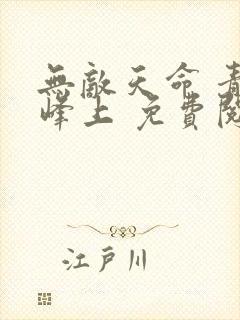 無敵天命 青
峰上 免費閱
江戸川